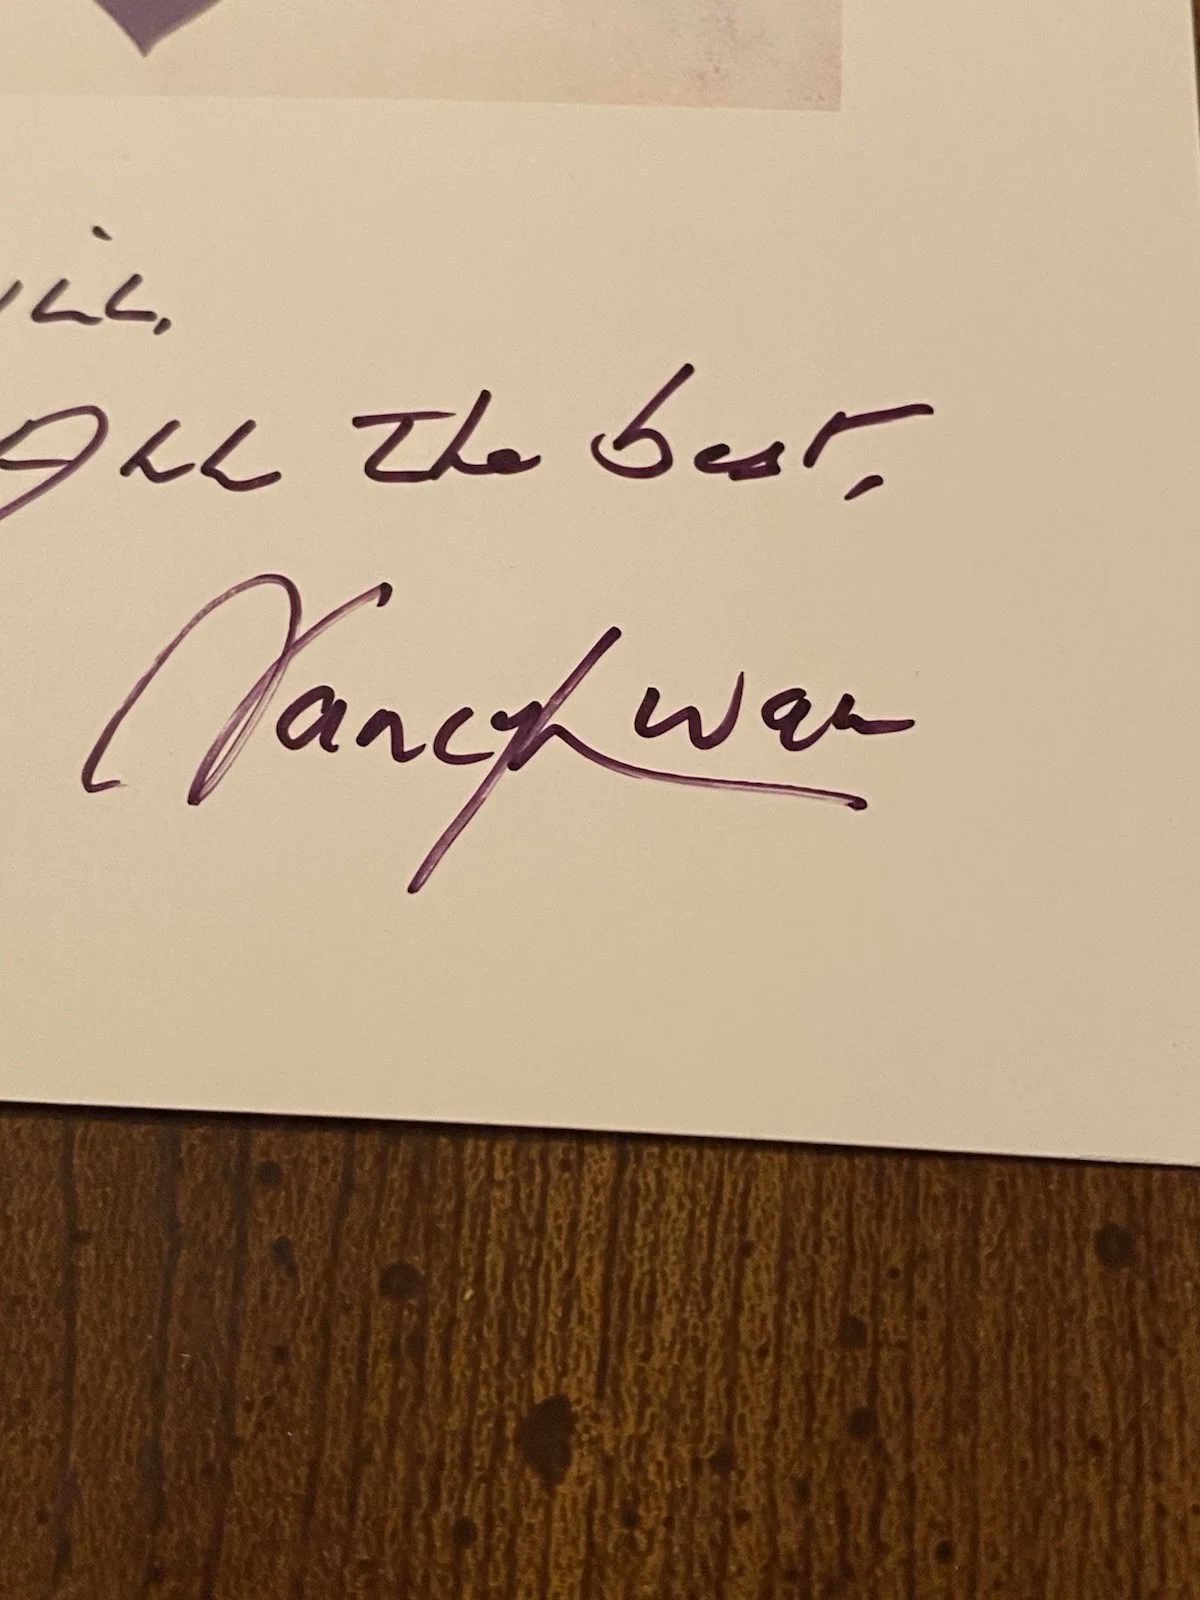 ill,
All the best,
Nancy Kwan